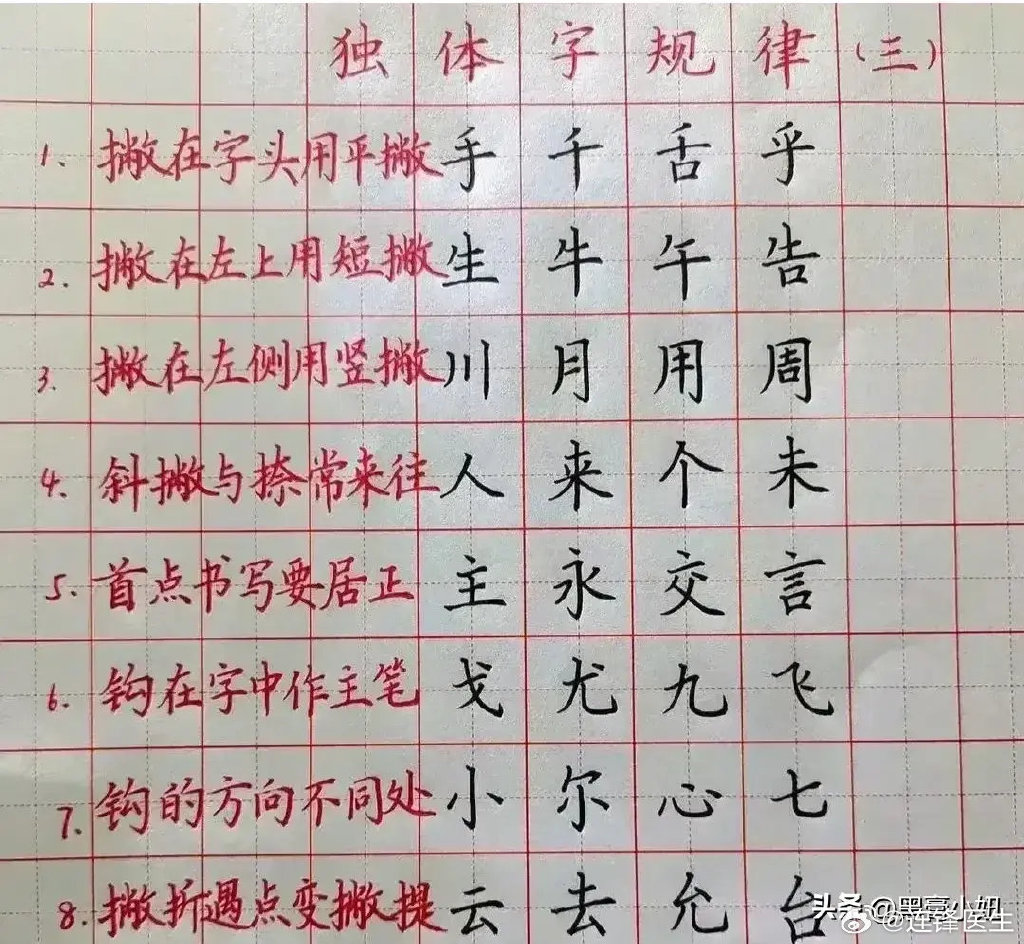 独体字规律(三)
1. 撇在字头用平撇 手 千 舌 乎
2. 撇在左上用短撇 生 牛 午 告
3. 撇在左侧用竖撇 川 月 用 周
4. 斜撇与捺常来往 人 来 个 未
5. 首点书写要居正 主 永 交 言
6. 钩在字中作主笔 戈 尤 九 飞
7. 钩的方向不同处 小 尔 心 七
8. 撇折遇点变撇提 云 去 允 台
头条 @黑亮小姐
@连锋医生